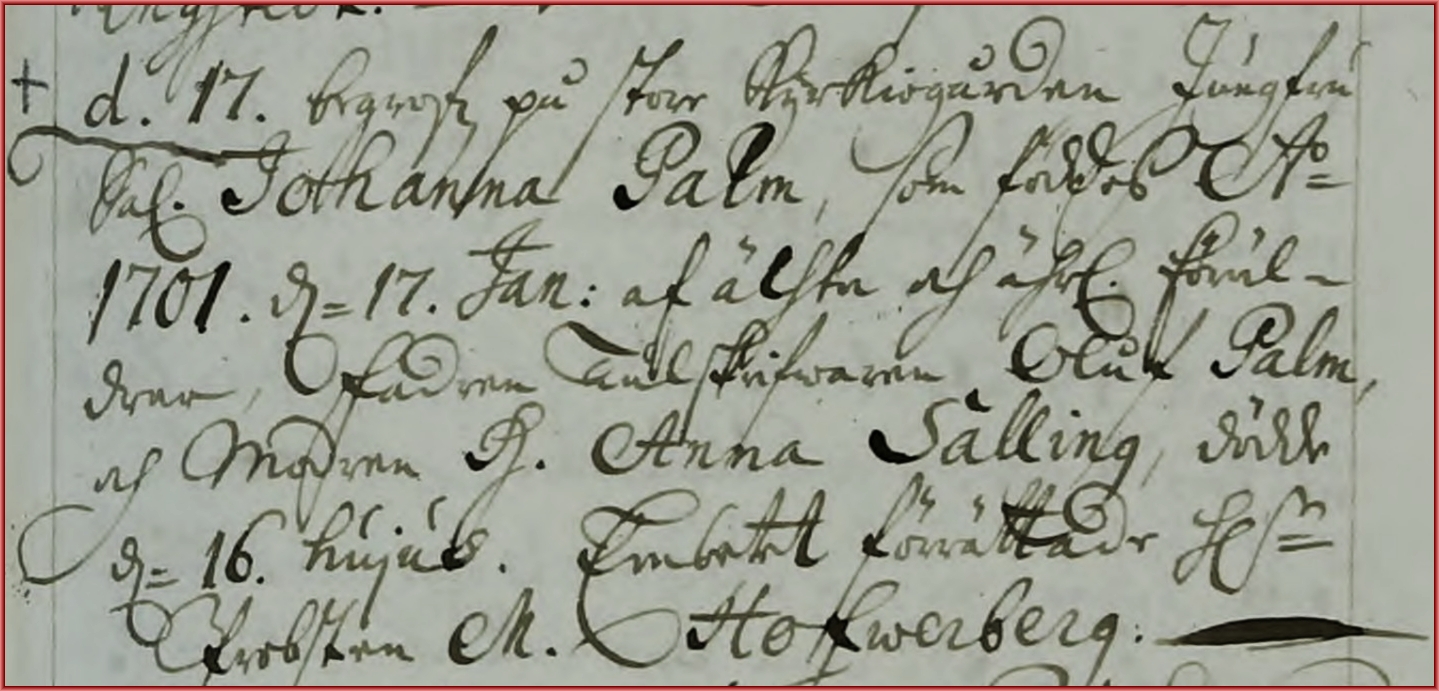 d. 17. begrofz på store Kyrkiogården Jungfru
Sal. Jothanna Palm, som föddes Aº
1701. dn 17. Jan: af älste och ährl. föräl-
drar, Fadren Tullskrifwaren Oluf Palm,
och Modren H. Anna Sälling, dödde
dn 16. hujus. Embetet förrättade
Probsten M. Hofwerberg.